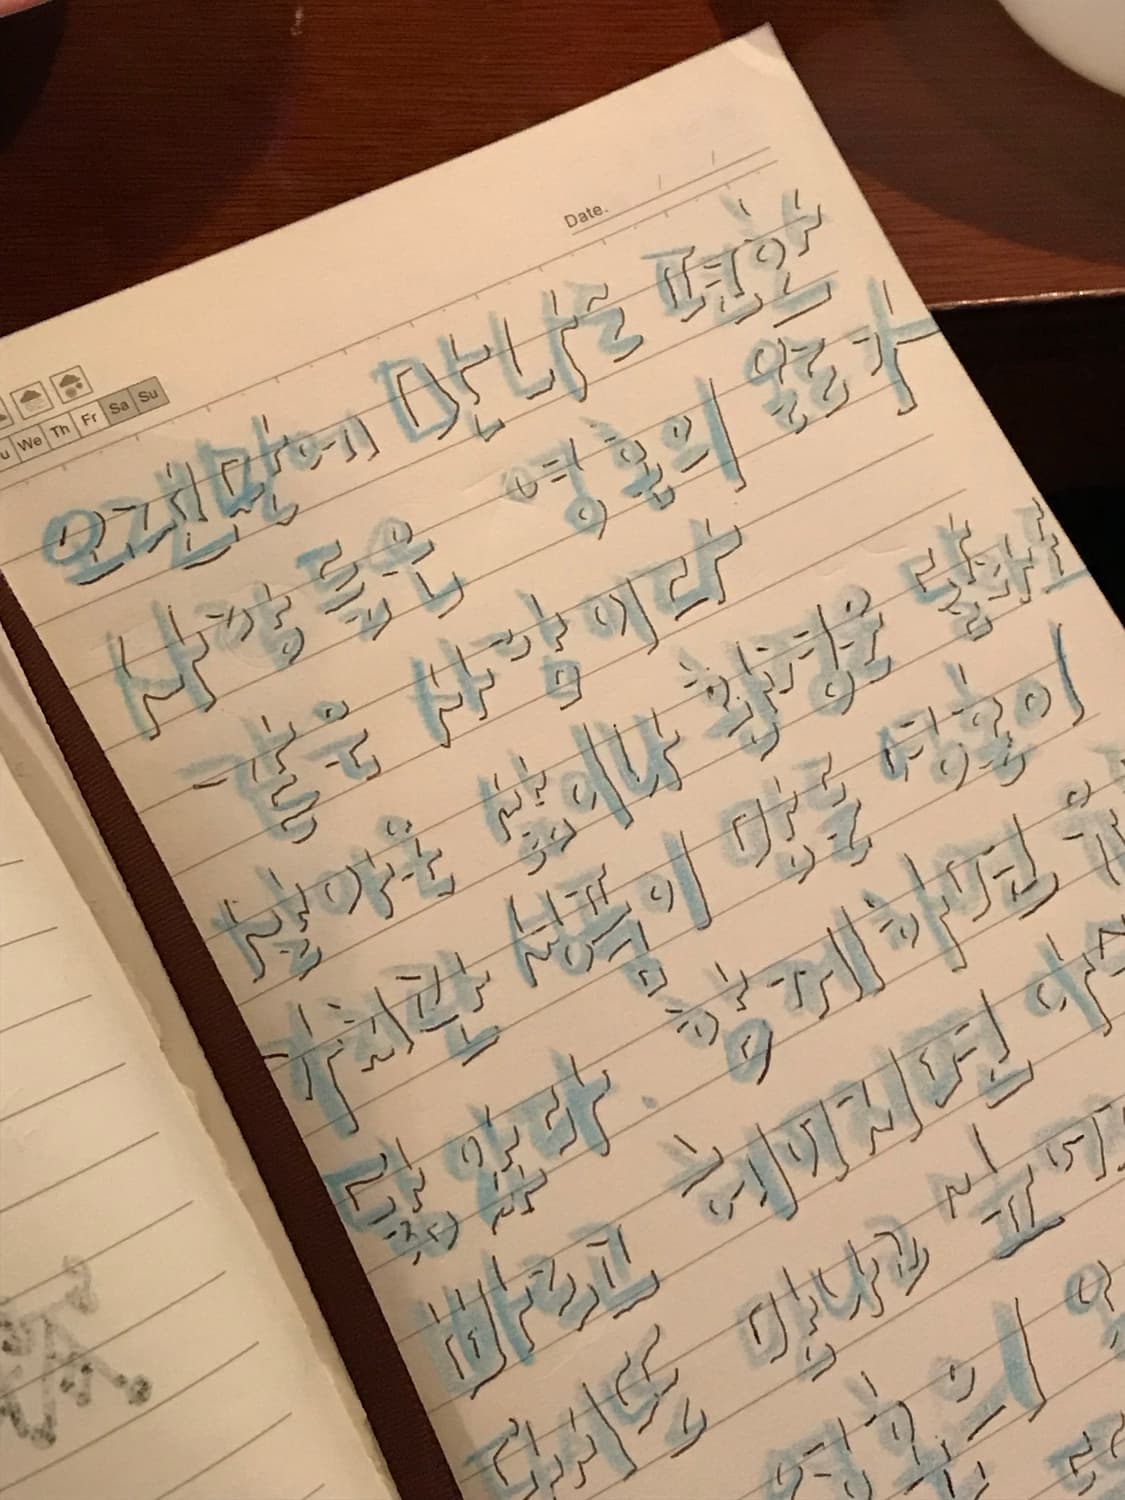 Date.
We Th Fr Sa Su
오랜만에 만나도 편한
사람들은 영혼의 온도가
같은 사람이다
살아온 삶이나 환경은 달라도
가치관 성품이 영혼이
닮았다. 함께하면
빠르고 헤어지면
다시 또 만나고
영혼의